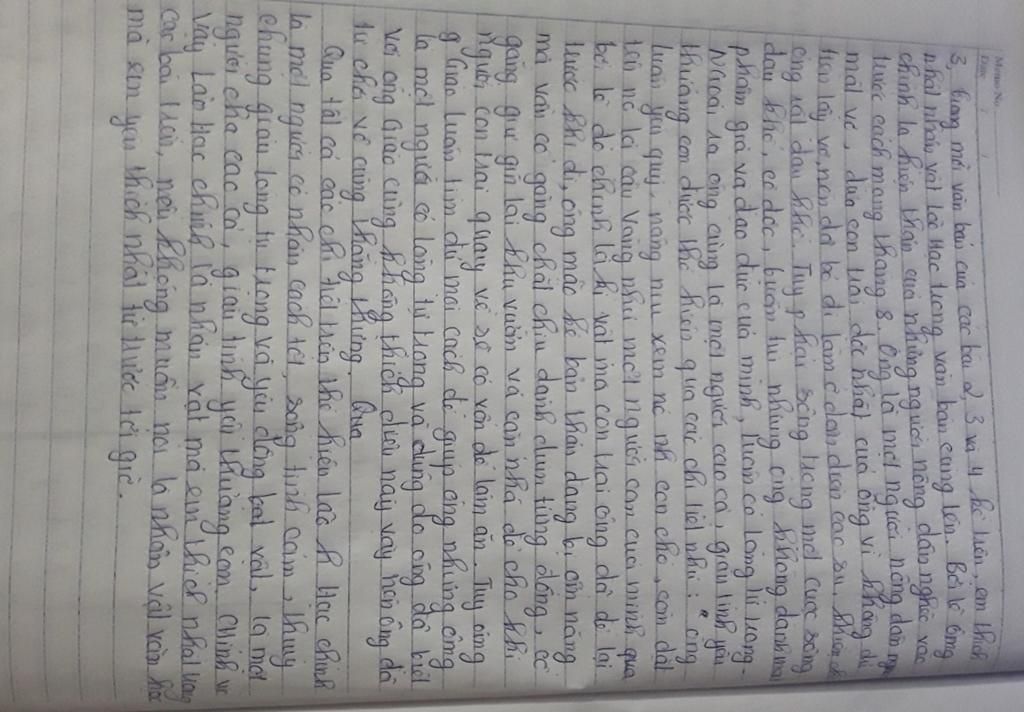 Memo No.
Date
3. Trong mỗi văn bản của các bài 2, 3 và 4 kể trên, em thích
nhất nhân vật Lão Hạc trong văn bản cùng tên. Bởi lẽ ông
chính là hiện thân của những người nông dân nghèo vào
trước cách mạng tháng 8. Ông là một người nông dân
mất vợ, đứa con trai duy nhất của ông vì không đủ
tiền lấy vợ, nên đã bỏ đi làm ở đồn điền cao su, khiến
ông rất đau khổ. Tuy phải sống trong một cuộc sống
đau khổ, cô độc, buồn tủi nhưng ông không đánh mất
phẩm giá và đạo đức của mình, luôn có lòng tự trọng.
Ngoài ra ông cũng là một người cao cả, giàu tình yêu
thương con được thể hiện qua các chi tiết như: " ông
luôn yêu quý, nâng niu xem nó như con chó, còn đặt
tên nó là cậu Vàng như một người con của mình qua
bởi lẽ đó chính là kỉ vật mà con trai ông đã để lại
trước khi đi, ông mặc kệ bản thân đang bị ốm nặng
mà vẫn cố gắng chắt chiu dành dụm từng đồng, cố
gắng giữ gìn lại khu vườn và căn nhà để cho khi
người con trai quay về sẽ có vốn để làm ăn. Tuy ông
giáo luôn tìm đủ mọi cách để giúp ông nhưng ông
là một người có lòng tự trọng và đứng đó ông đã biết
vợ ông Giáo cũng không thích điều này vậy nên ông đã
từ chối vô cùng thẳng thừng. Qua
Qua tất cả các chi tiết trên thể hiện Lão Hạc chính
là một người có nhân cách tốt, sống tình cảm, thủy
chung giàu lòng tự trọng và yêu động vật, là một
người cha cao cả, giàu tình yêu thương con. Chính vì
vậy Lão Hạc chính là nhân vật mà em thích nhất trong
các bài trên, nếu không muốn nói là nhân vật văn học
mà em yêu thích nhất từ trước tới giờ.